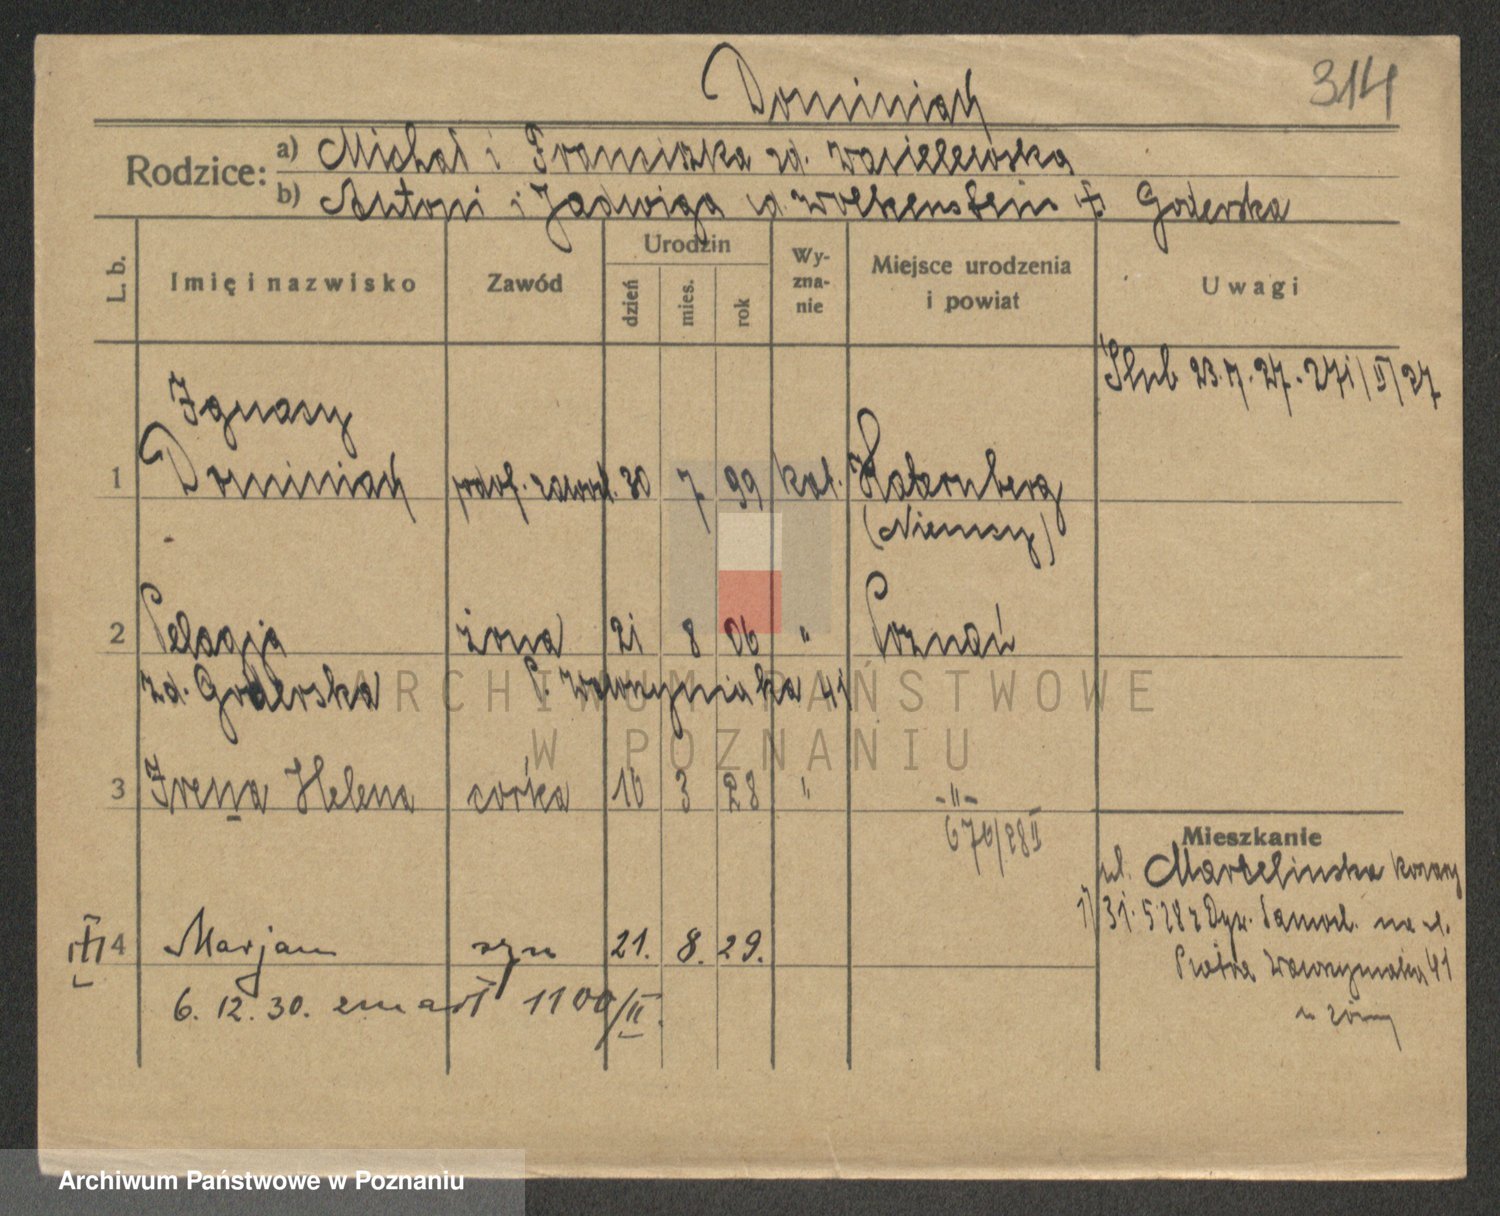 Dominiach
314
Rodzice:
a) Michał i Franciszka zd. Wasielewska
b) Antoni i Jadwiga zd. Wolkenstein Goderska
L. b.
Imię i nazwisko
Zawód
Urodzin
dzień
mies.
rok
Wy-
zna-
nie
Miejsce urodzenia
i powiat
Uwagi
Ślub 23.7.27. 271/II/27
Ignacy
1 Dominiach zawod. 30 7 99 kat. Katernberg
(Niemcy)
2 Pelagja żona 21 8 06 " Poznań
zd. Goderska P. Wawrzyniaka 41
3 Irena Helena córka 16 3 28 " -"-
670/28 II
Mieszkanie
ul. Marcelińska
1) 31.5.28 z na ul.
Piotra Wawrzyniaka 41
4 Marjan syn 21. 8. 29.
6. 12. 30. zmarł 1100/II.
ARCHIWUM PAŃSTWOWE
W POZNANIU
Archiwum Państwowe w Poznaniu